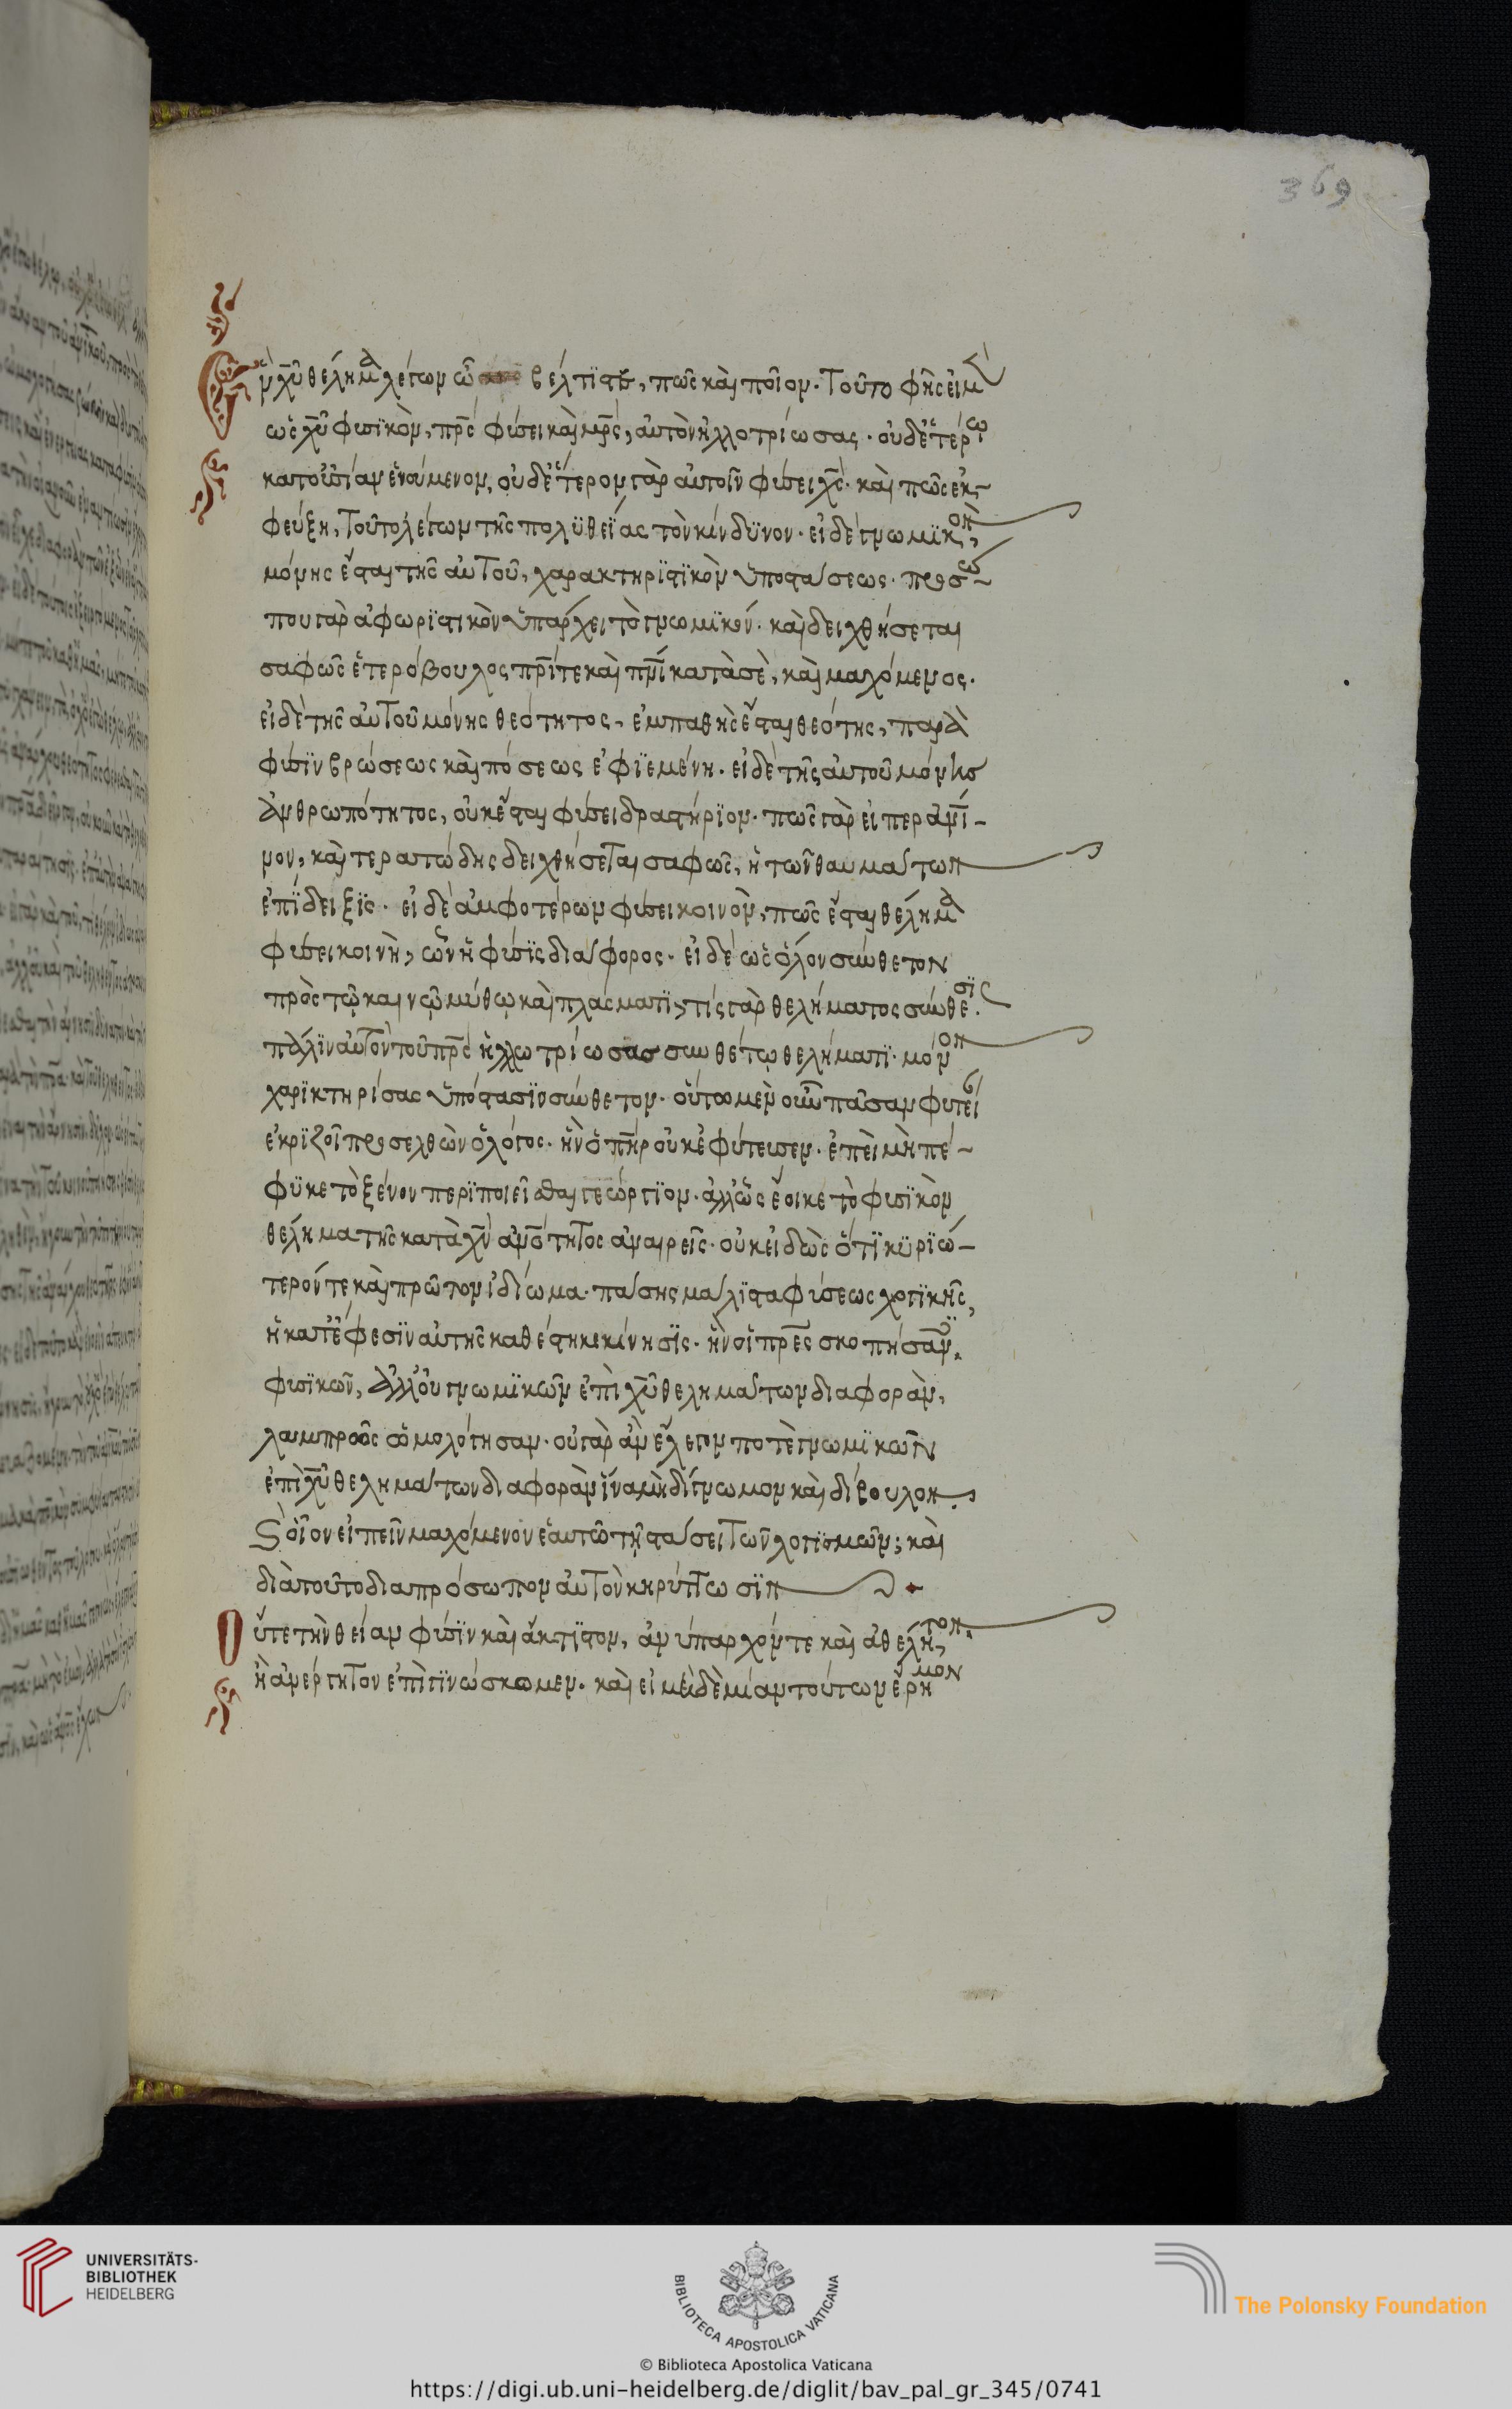 369
Ἓν χ̅υ̅ θέλημα λέγων ὦ βέλτιστε, πῶς καὶ ποῖον. τοῦτο φὴς εἶναι
ὡς χ̅υ̅ φυσϊκὸν, π̅ρ̅ς̅ φύσει καὶ μ̅ρ̅ς̅, αὐτὸν ἠλλοτρίωσας. οὐδετέρω
κατουσίαν ἑνούμενον, οὐδέτερον γὰρ αὐτοῖν φύσει χ̅ς̅. καὶ πῶς ἐκ
φεύξη, τοῦτο λέγων τῆς πολϋθεΐας τὸν κίνδϋνον. εἰ δὲ γνωμϊκὸν,
μόνης ἔσται τῆς αὐτοῦ, χαρακτηρϊστϊκὸν ὑποστάσεως. προσώ
που γὰρ ἀφωρϊστικὸν ὑπάρχει τὸ γνωμϊκόν. καὶ δειχθήσεται
σαφῶς ἑτερόβουλος π̅ρ̅ί̅ τε καὶ π̅ν̅ί̅ κατὰ σὲ, καὶ μαχόμενος.
εἰ δὲ τῆς αὐτοῦ μόνης θεότητος, ἐμπαθὴς ἔσται θεότης, παρὰ
φύσϊν βρώσεως καὶ πόσεως ἐφϊεμένη. εἰ δὲ τῆς αὐτοῦ μόνης
ἀνθρωπότητος, οὐκ ἔσται φύσει δραστήρϊον. πῶς γὰρ εἰπερ ἀνΐ
μον, καὶ τερατώδης δειχθήσεται σαφῶς, ἡ τῶν θαυμάτων
ἐπΐδειξϊς. εἰ δὲ ἀμφοτέρων φύσει κοινὸν, πῶς ἔσται θέλημα
φύσει κοινὴ, ὧν ἡ φύσϊς διάφορος. εἰ δὲ ὡς ὅλον σύνθετον
πρὸς τῷ καινῷ μύθω καὶ πλάσματϊ, τίς γὰρ θελήματος σύνθεσϊς.
πάλϊν αὐτὸν τοῦ π̅ρ̅ς̅ ἠλλωτρίωσας συνθέτω θελήματϊ. μόνον
χαρϊκτηρίσας ὑπόστασϊν σύνθετον. οὕτω μὲν οὖν πᾶσαν φυτεί
ἐκρϊζοῖ προσελθὼν ὁ λόγος. ἣν ὁ π̅η̅ρ̅ οὐκ ἐφύτευσεν. ἐπεὶ μὴ πέ
φϋκε τὸ ξένον περϊποιεῖσθαι γεώργϊον. ἀλλ' ὡς ἔοικε τὸ φυσϊκὸν
θέλημα τῆς κατὰ χ̅ν̅ ἀν̅ό̅τητος ἀναιρεῖς. οὐκ εἰδὼς ὅτϊ κϋρϊώ
τερόν τε καὶ πρῶτον ἰδίωμα. πάσης μάλϊστα φύσεως λογϊκῆς,
ἡ κατ' ἔφεσϊν αὐτῆς καθέστηκε κίνησϊς. ἣν οἱ π̅ρ̅ε̅ς̅ σκοπήσαν
φυσϊκῶν, ἀλλ' οὐ γνωμϊκῶν ἐπὶ χ̅υ̅ θελημάτων διαφορὰν,
λαμπρῶς ὡμολόγησαν. οὐ γὰρ ἂν ἔλεγον ποτὲ γνωμϊκῶν
ἐπὶ χ̅υ̅ θελημάτων διαφορὰν ἵνα μὴ δίγνωμον καὶ δίβουλον.
οἷον εἰπεῖν μαχόμενον ἑαυτῶ τῆ στάσει τῶν λογϊσμῶν; καὶ
διὰ τοῦτο διαπρόσωπον αὐτὸν κηρύττωσϊν
Οὔτε τὴν θείαν φύσϊν καὶ ἄκτϊστον, ἀνύπαρχόν τε καὶ ἀθέλητον,
ἢ ἀνέργητον ἐπϊγϊνώσκωμεν. καὶ εἰ μὲ δὲ μίαν τούτων ἔρημον
UNIVERSITÄTS-
BIBLIOTHEK
HEIDELBERG
BIBLIOTECA APOSTOLICA VATICANA
The Polonsky Foundation
© Biblioteca Apostolica Vaticana
https://digi.ub.uni-heidelberg.de/diglit/bav_pal_gr_345/0741